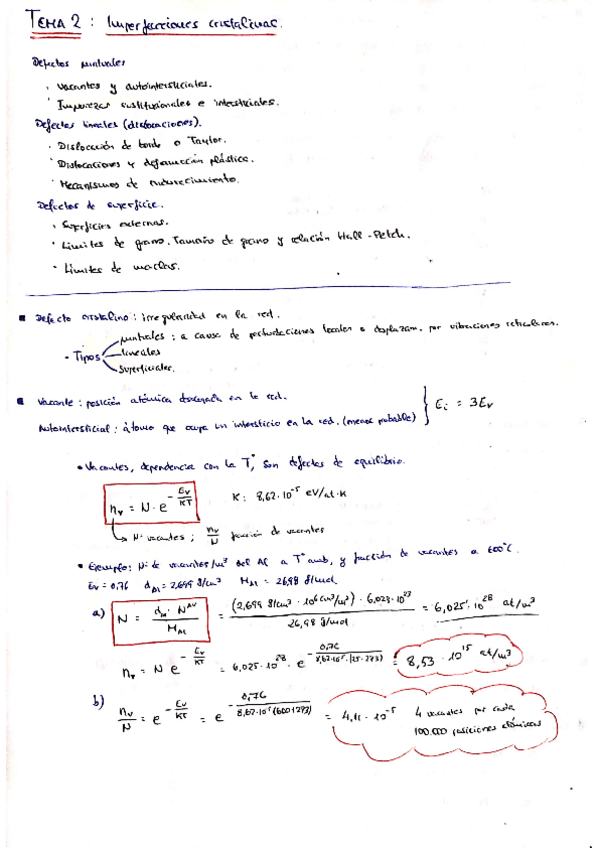 TEMA 2 : Imperfecciones cristalinas.
Defectos puntuales
· Vacantes y autointersticiales.
· Impurezas sustitucionales e intersticiales.
Defectos lineales (dislocaciones).
· Dislocación de borde o Taylor.
· Dislocaciones y deformación plástica.
· Mecanismos de endurecimiento.
Defectos de superficie.
· Superficies externas.
· Límites de grano. Tamaño de grano y relación Hall-Petch.
· Límites de maclas.
Defecto cristalino : irregularidad en la red.
- Tipos
puntuales : a causa de perturbaciones locales o desplazam. por vibraciones reticulares.
lineales
superficiales.
Vacante : posición atómica desocupada en la red.
Autointersticial : átomo que ocupa un intersticio en la red. (menos probable)
} Ei = 3Ev
• Vacantes, dependencia con la Tª, son defectos de equilibrio.
nv = N · e^(-Ev/KT)
K : 8,62·10^-5 eV/at·K
Nº vacantes ; nv/N fracción de vacantes
• Ejemplo: Nº de vacantes/m³ del Al a Tª amb, y fracción de vacantes a 600°C.
Ev = 0,76 dAl = 2,699 g/cm³ MAl = 26,98 g/mol
a) N = dAl · NAV / MAl = (2,699 g/cm³ · 10^6 cm³/m³) · 6,023·10^23 / 26,98 g/mol = 6,025·10^28 at/m³
nv = N e^(-Ev/KT) = 6,025·10^28 · e^(-0,76/8,62·10^-5·(25+273)) = 8,53 · 10^15 at/m³
b) nv/N = e^(-Ev/KT) = e^(-0,76/8,62·10^-5(600+273)) = 4,11 · 10^-5
4 vacantes por cada
100.000 posiciones atómicas